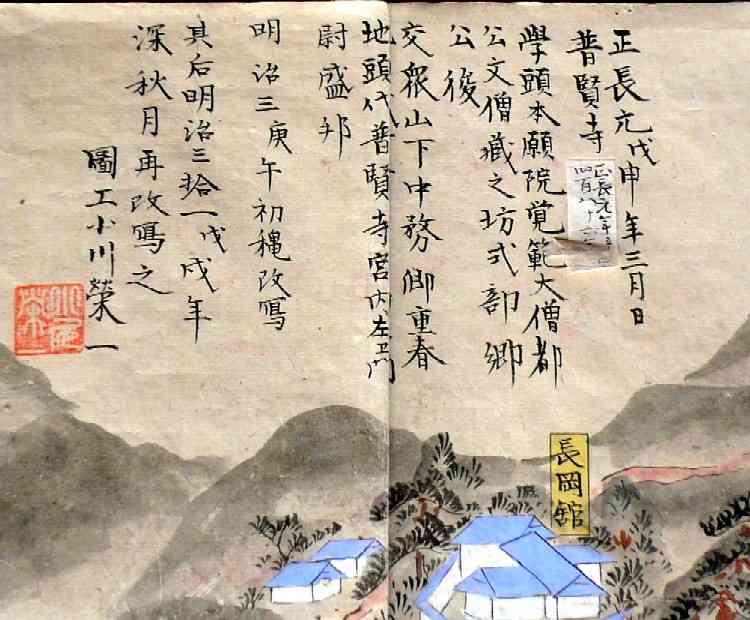 正長元戊申年三月日
普賢寺
學頭本願院覚範大僧都
公文僧蔵之坊式部卿
公後
交衆山下中務卿重春
地頭代普賢寺宮内左衛門
尉盛邦
明治三庚午初穐改寫
其后明治三拾一戊戌年
深秋月再改寫之
圖工小川榮一
長岡館